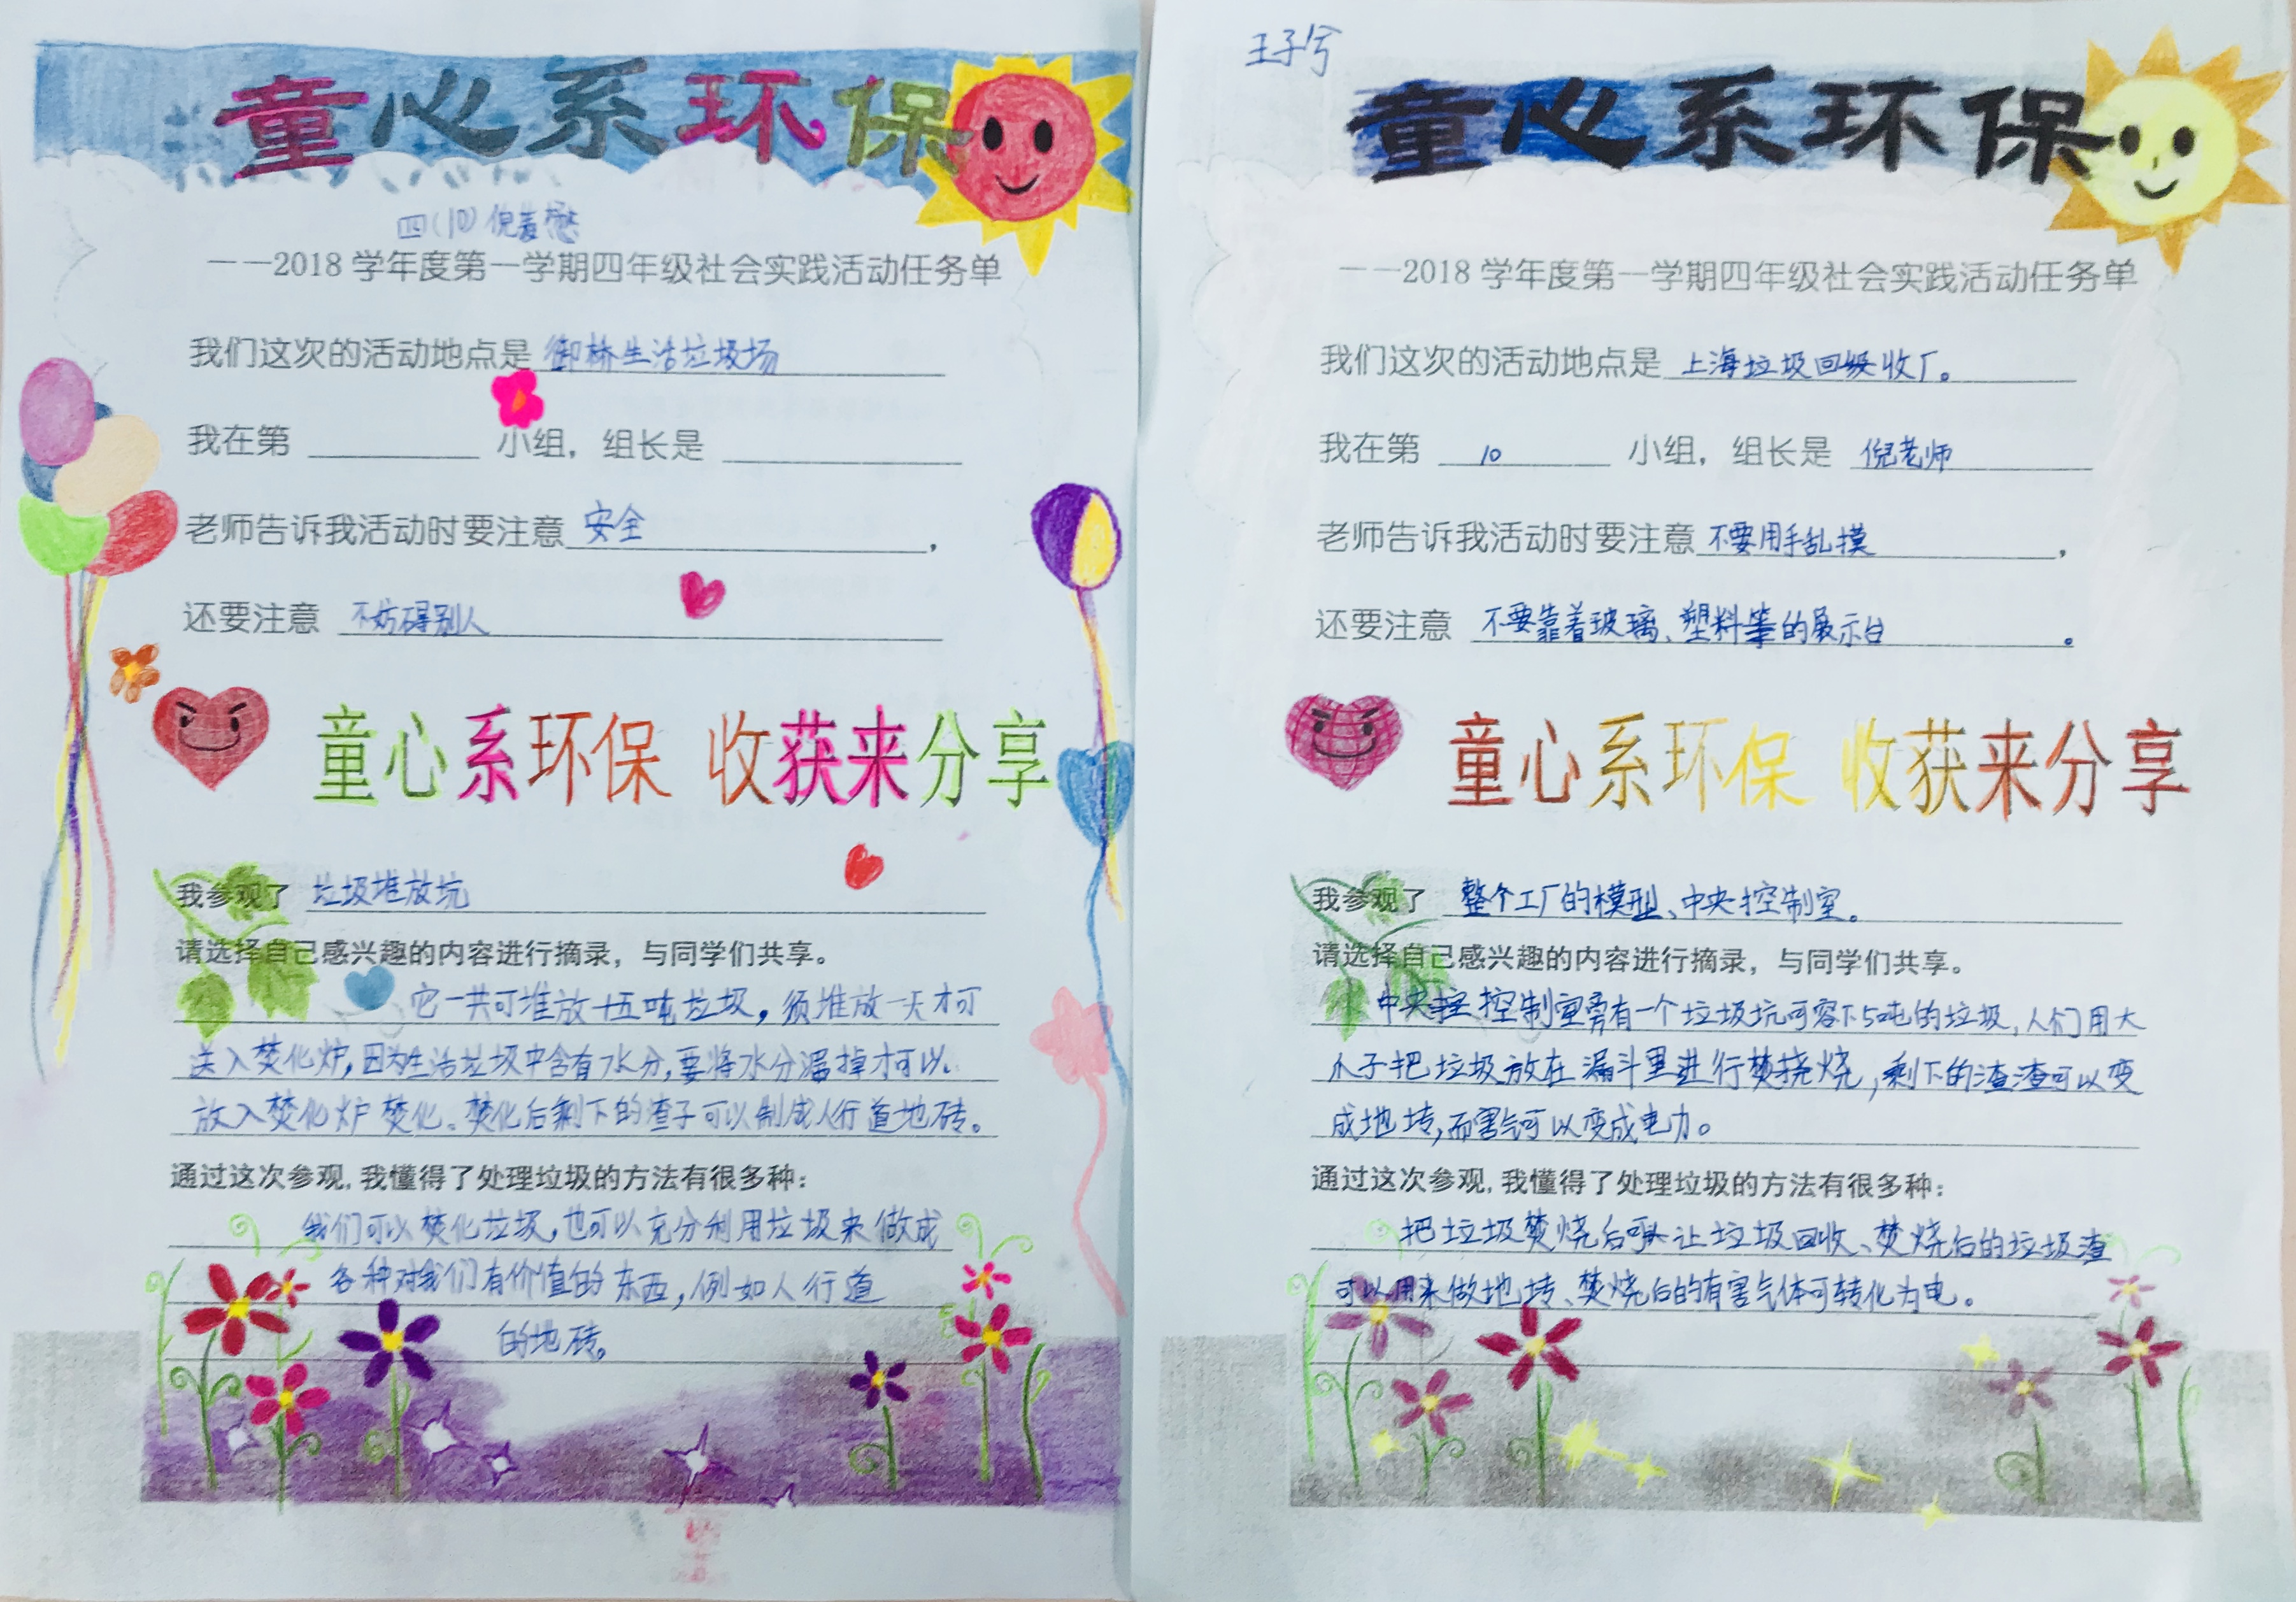 童心系环保
四(10) 倪
——2018学年度第一学期四年级社会实践活动任务单
我们这次的活动地点是 御桥生活垃圾场
我在第 小组，组长是
老师告诉我活动时要注意 安全，
还要注意 不妨碍别人
童心系环保 收获来分享
我参观了 垃圾堆放坑
请选择自己感兴趣的内容进行摘录，与同学们共享。
它一共可堆放十五吨垃圾，须堆放一天才可
送入焚化炉，因为生活垃圾中含有水分，要将水分漏掉才可以。
放入焚化炉焚化。焚化后剩下的渣子可以制成人行道地砖。
通过这次参观，我懂得了处理垃圾的方法有很多种：
我们可以焚化垃圾，也可以充分利用垃圾来做成
各种对我们有价值的东西，例如人行道
的地砖。
王子兮
童心系环保
——2018学年度第一学期四年级社会实践活动任务单
我们这次的活动地点是 上海垃圾回收厂。
我在第 10 小组，组长是 倪老师
老师告诉我活动时要注意 不要用手乱摸，
还要注意 不要靠着玻璃、塑料等的展示台。
童心系环保 收获来分享
我参观了 整个工厂的模型、中央控制室。
请选择自己感兴趣的内容进行摘录，与同学们共享。
中央控制室旁有一个垃圾坑可容下5吨的垃圾，人们用大
爪子把垃圾放在漏斗里进行焚烧，剩下的渣渣可以变
成地砖，而害气可以变成电力。
通过这次参观，我懂得了处理垃圾的方法有很多种：
把垃圾焚烧后 让垃圾回收、焚烧后的垃圾渣
可以用来做地砖、焚烧后的有害气体可转化为电。